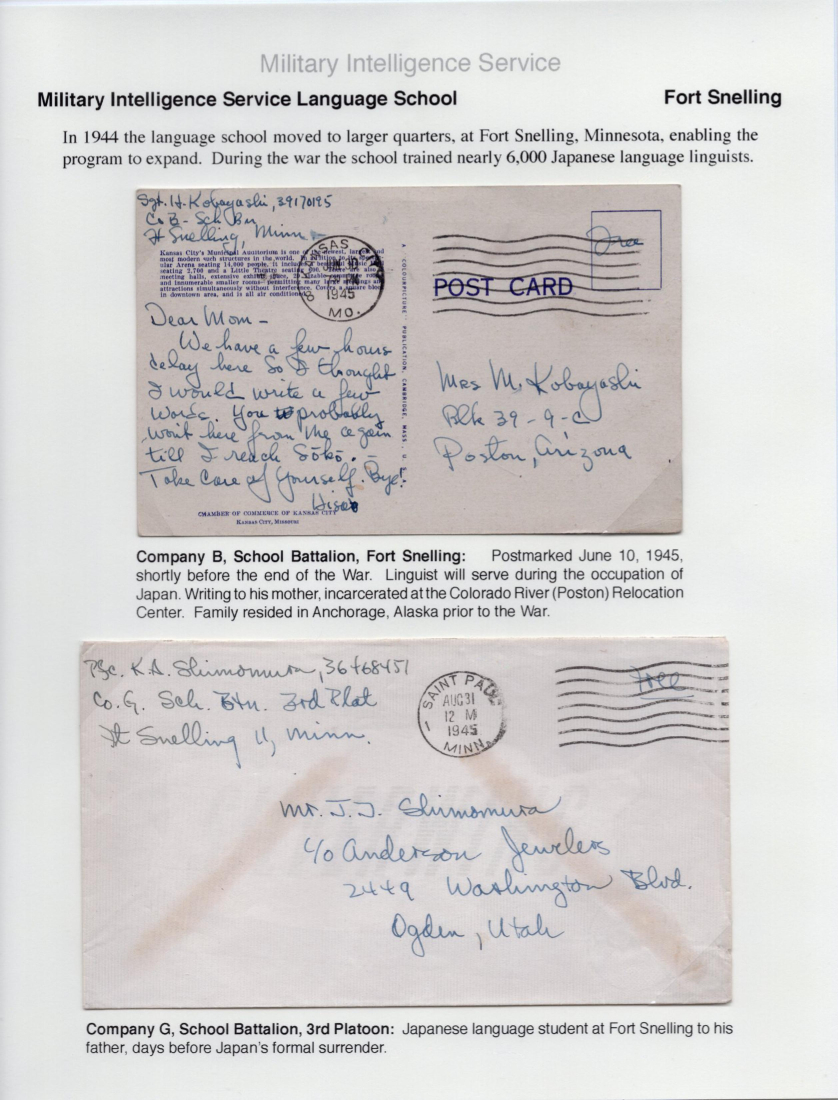 Military Intelligence Service
Military Intelligence Service Language School
Fort Snelling
In 1944 the language school moved to larger quarters, at Fort Snelling, Minnesota, enabling the
program to expand. During the war the school trained nearly 6,000 Japanese language linguists.
Sgt. H. Kobayashi, 39170195
Co B - Sch Bn
Ft Snelling, Minn
Kansas City's Municipal Auditorium is one of
most modern such structures in the world.
ular Arena seating 14,000 people, it includes a
seating 2,700 and a Little Theatre seating
meeting halls, extensive exhibit space,
and innumerable smaller rooms permitting many
attractions simultaneously without interference. Covers a square block
in downtown area, and is all air conditioned.
KANSAS CITY
1945
MO.
Free
POST CARD
A "COLOURPICTURE" PUBLICATION, CAMBRIDGE, MASS. U.
Dear Mom -
We have a few hours
delay here so I thought
I would write a few
words. You probably
won't here from me again
till I reach Sōkō. -
Take care of yourself. Bye!
Hisao
CHAMBER OF COMMERCE OF KANSAS CITY
KANSAS CITY, MISSOURI
Mrs M. Kobayashi
Blk 39-9-C
Poston, Arizona
Company B, School Battalion, Fort Snelling: Postmarked June 10, 1945,
shortly before the end of the War. Linguist will serve during the occupation of
Japan. Writing to his mother, incarcerated at the Colorado River (Poston) Relocation
Center. Family resided in Anchorage, Alaska prior to the War.
Pvc. K.A. Shimomura, 36468451
Co. G. Sch. Btn. 3rd Plat
Ft Snelling 11, Minn.
SAINT PAUL
AUG 31
12 M
1945
MINN.
1
Free
Mr. J.J. Shimomura
c/o Anderson Jewelers
2449 Washington Blvd.
Ogden, Utah
Company G, School Battalion, 3rd Platoon: Japanese language student at Fort Snelling to his
father, days before Japan's formal surrender.